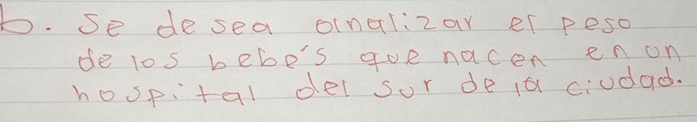 b. Se desea analizar el peso
de los bebe's que nacen en un
hospital del sur de la ciudad.